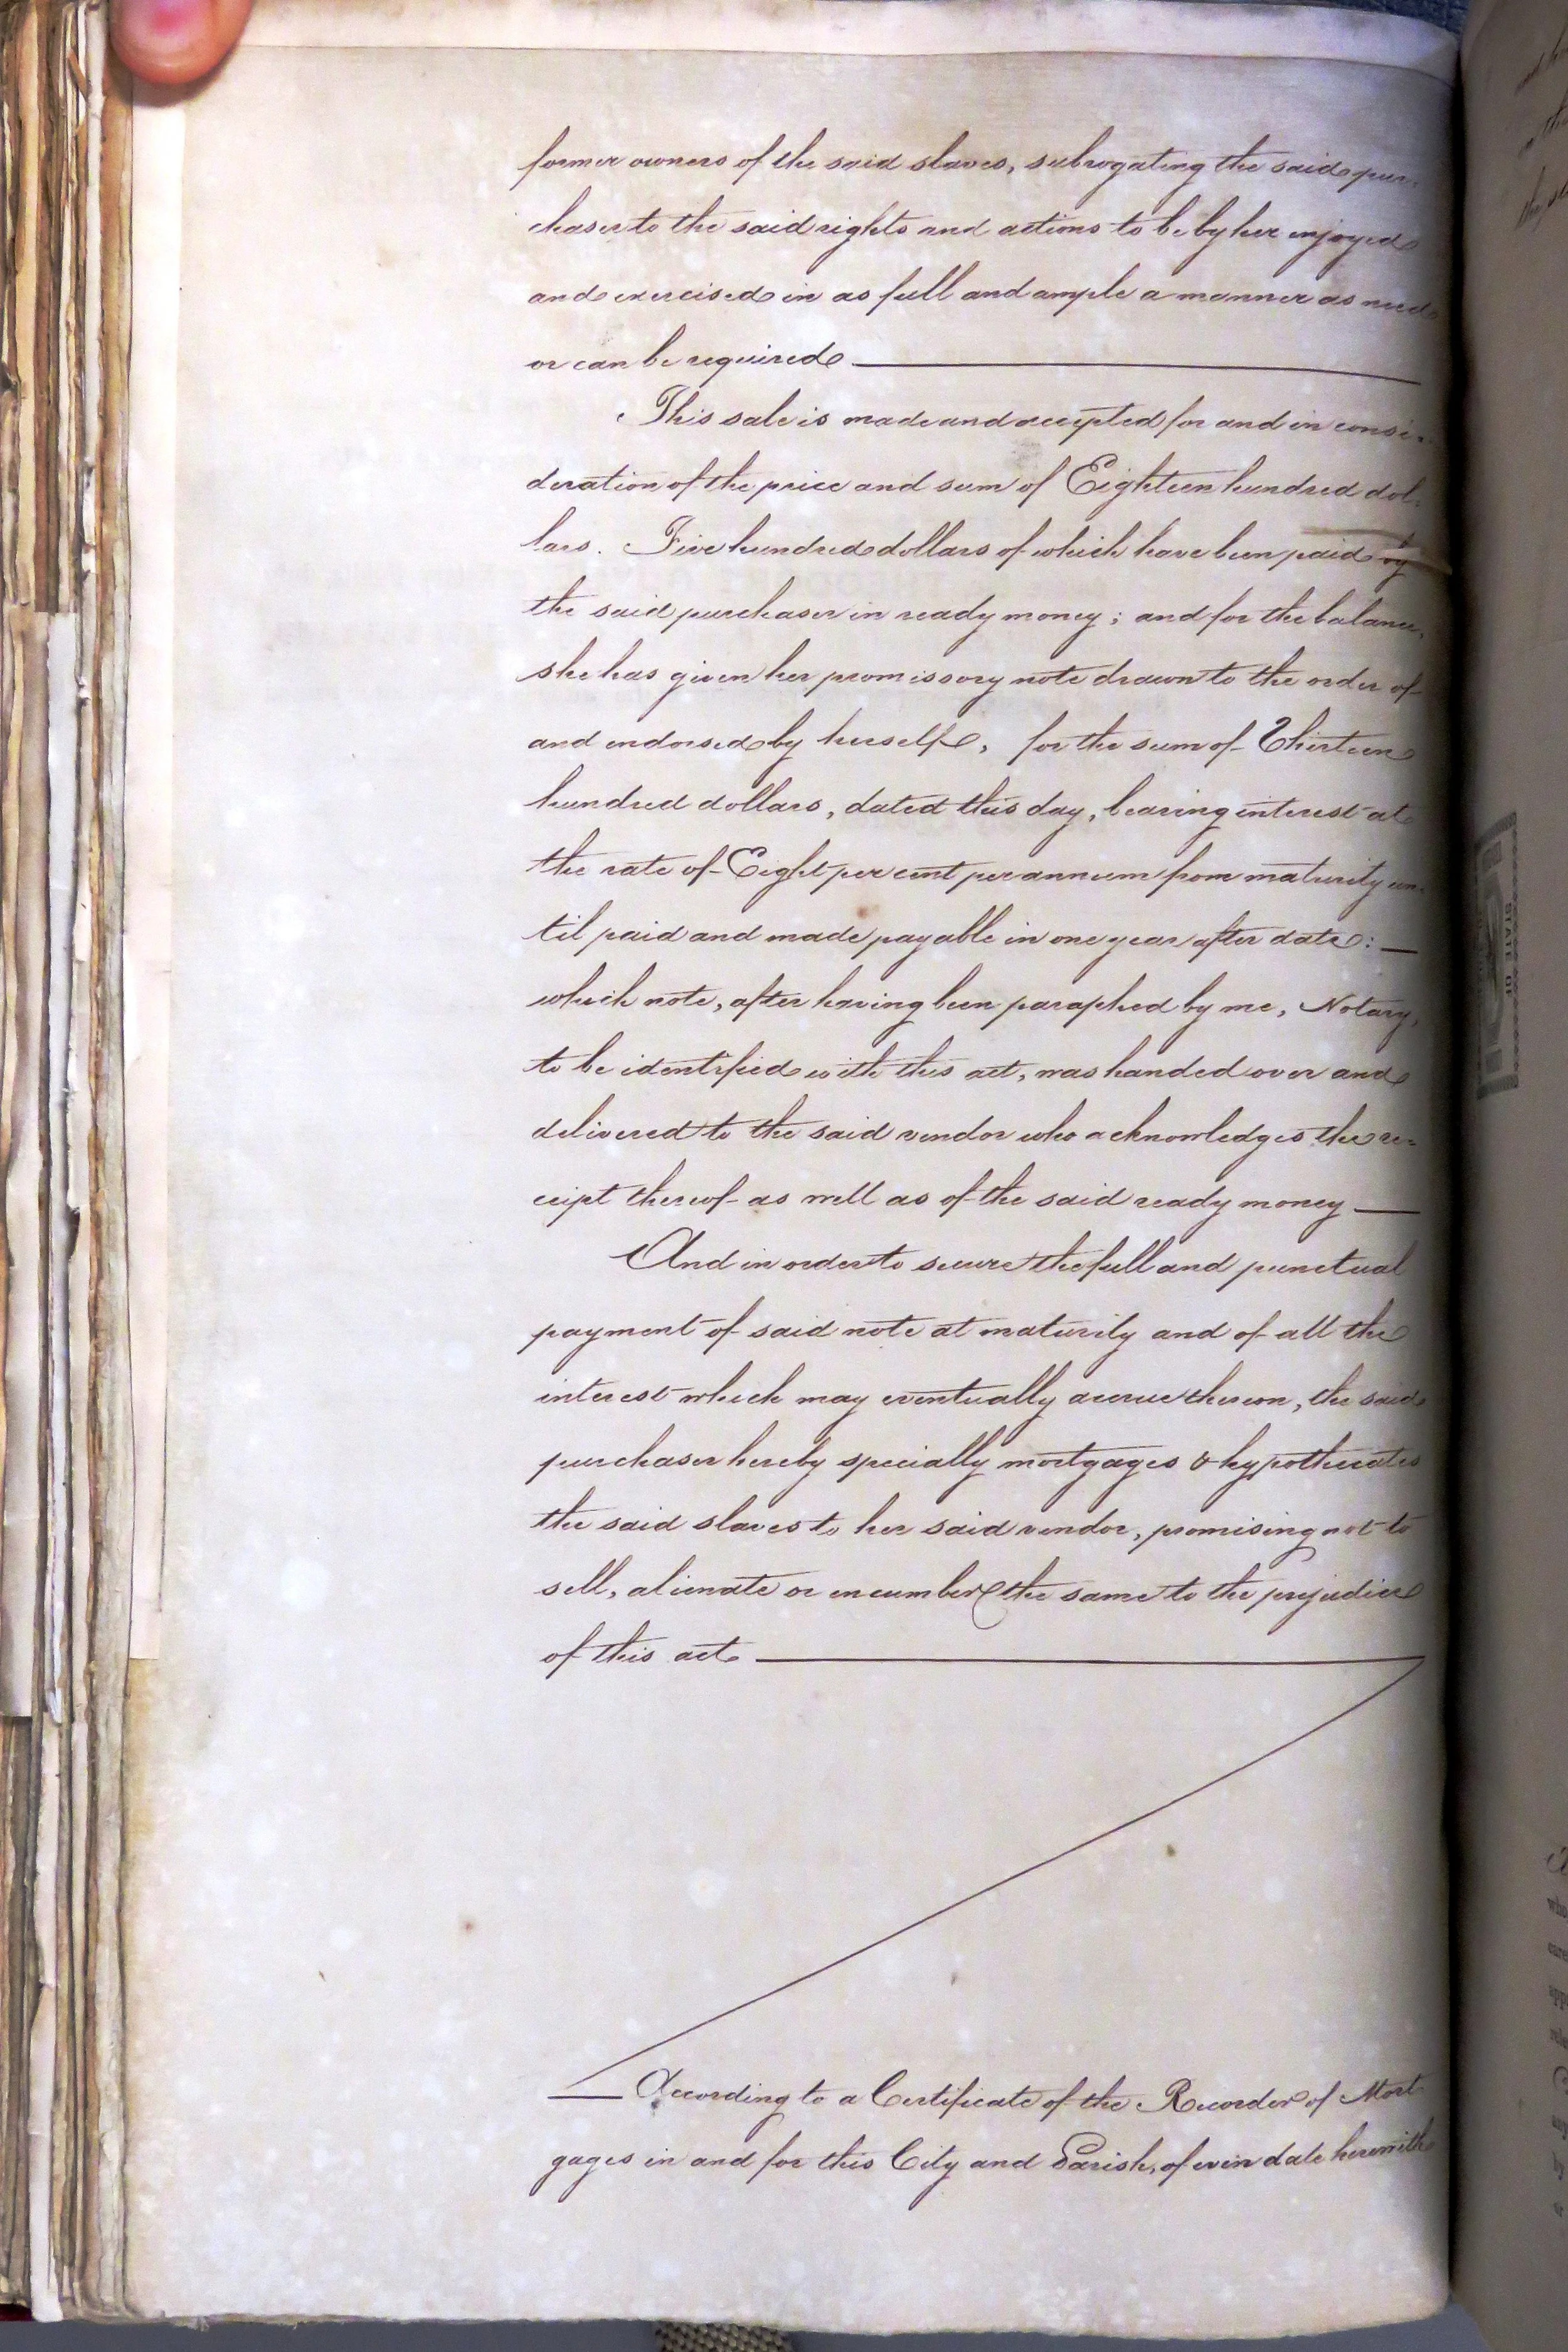 former owners of the said slaves, subrogating the said pur-
chaser to the said rights and actions to be by her enjoyed
and exercised in as full and ample a manner as need
or can be required
This sale is made and accepted for and in consi-
deration of the price and sum of Eighteen hundred dol-
lars. Five hundred dollars of which have been paid by
the said purchaser in ready money; and for the balance,
she has given her promissory note drawn to the order of
and endorsed by herself, for the sum of Thirteen
hundred dollars, dated this day, bearing interest at
the rate of Eight per cent per annum from maturity un-
til paid and made payable in one year after date: —
which note, after having been paraphed by me, Notary,
to be identified with this act, was handed over and
delivered to the said vendor who acknowledges the re-
ceipt thereof as well as of the said ready money —
And in order to secure the full and punctual
payment of said note at maturity and of all the
interest which may eventually accrue thereon, the said
purchaser hereby specially mortgages & hypothecates
the said slaves to her said vendor, promising not to
sell, alienate or encumber the same to the prejudice
of this act
According to a Certificate of the Recorder of Mort
gages in and for this City and Parish, of even date herewith
STATE OF